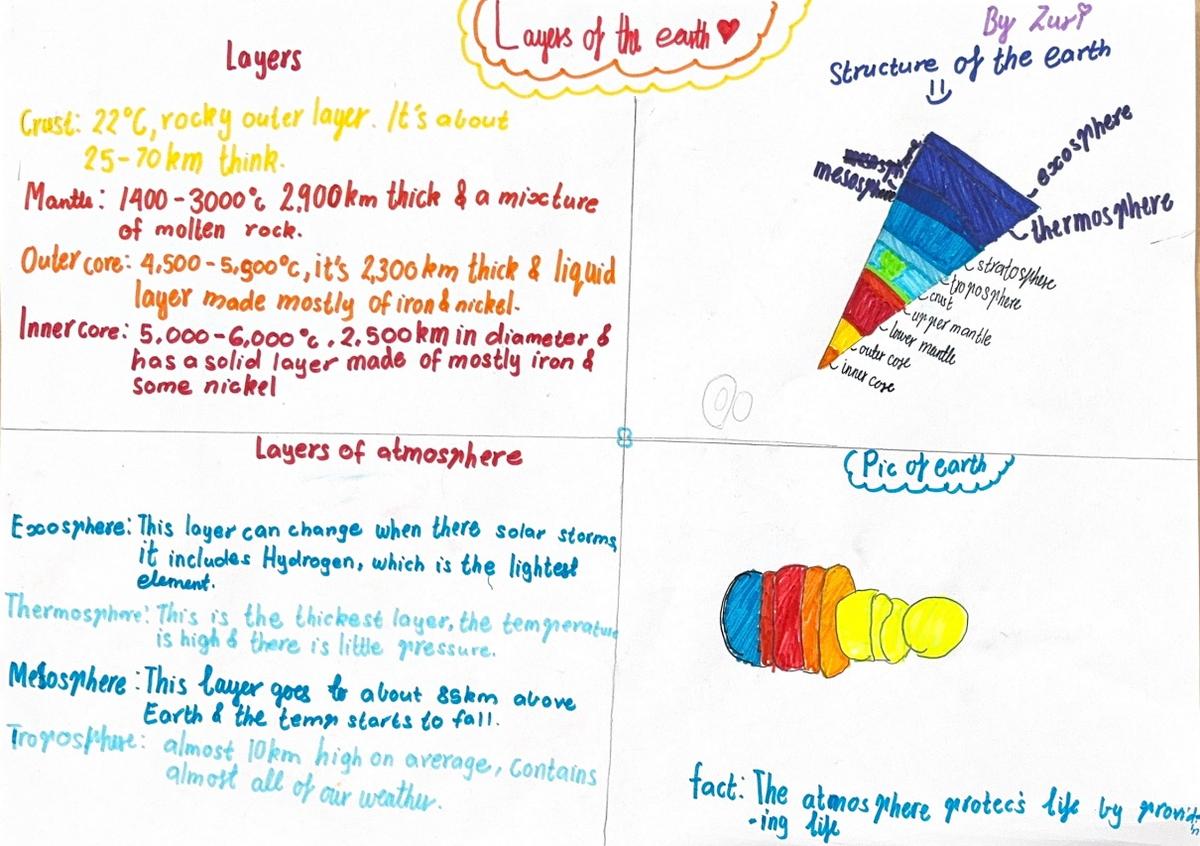 Layers of the earth
By Zuri
Layers
Crust: 22°C, rocky outer layer. It's about
25-70 km think.
Mantle: 1400-3000°c 2,900km thick & a mixture
of molten rock.
Outer core: 4,500-5,900°c, it's 2,300 km thick & liquid
layer made mostly of iron & nickel.
Inner core: 5,000-6,000°c, 2,500km in diameter &
has a solid layer made of mostly iron &
some nickel
Structure of the earth
mesosphere
exosphere
thermosphere
stratosphere
troposphere
crust
upper mantle
lower mantle
outer core
inner core
Layers of atmosphere
Exosphere: This layer can change when there solar storms,
it includes Hydrogen, which is the lightest
element.
Thermosphere: This is the thickest layer, the temperature
is high & there is little pressure.
Mesosphere: This layer goes to about 85km above
Earth & the temp starts to fall.
Troposphere: almost 10km high on average, contains
almost all of our weather.
Pic of earth
fact: The atmosphere protecs life by provid
-ing life